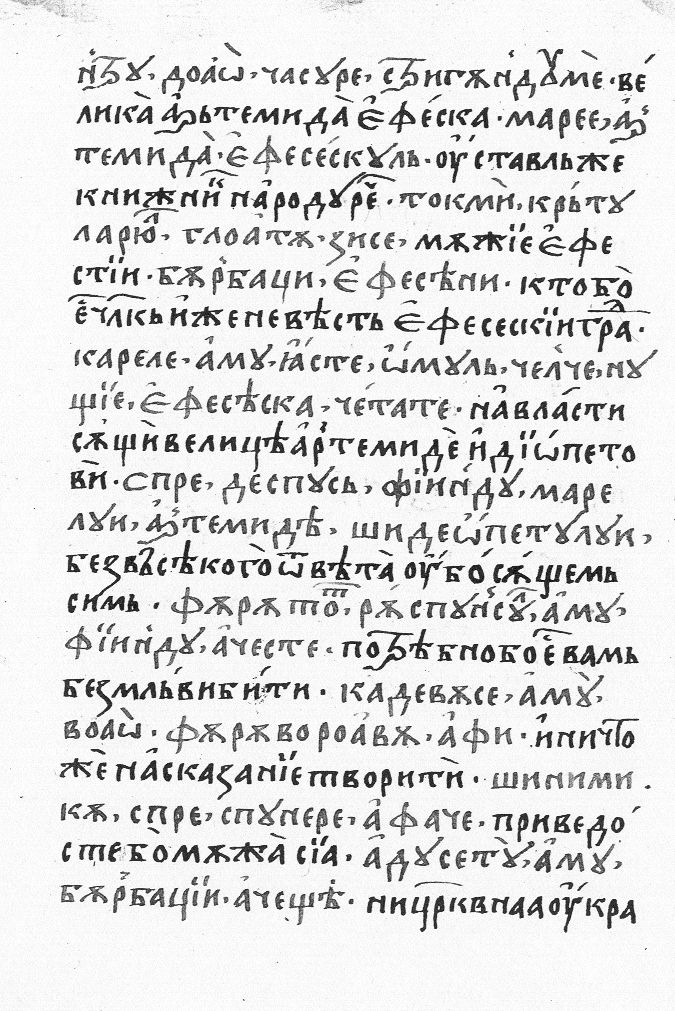 и҆нтру, доаѡ̀, часуре, стригѫндꙋмѐ · ве́
лика̀ арьтемида̀ є҆фе́ска · марее, ар
темида̀ · є҆фесе́скуль · оу҆ставльже
книжнїи на́родурѐ · токмѝ, крь́ту
ларюл, глоа́тѫ, зисе, мѫжїе є҆фе
стїи · бѫрбаци, є҆фесѣ́ни · кто бо̀
є҆ чл҃кь и҆же не вѣсть є҆фесескїи гра ·
кареле, а҆му, ꙗ҆́сте, ѡ҆́муль, челче, ну
щїе, є҆фесѣ́ска, че́тате · на́ власти
сѫщѝ велицѣ а҆ртемидѐ и҆ дїѡ҆пето
вѝ · спре, деспусь, фїи́нду, маре
луи, артемидѣ, ши деѡ҆петулуи,
без въсѣкого̀ ѿвѣта̀ оу҆бо́ сѫ́щемь
симь · фѫрѫ то, рѫспунсул, а҆му,
фїи́нду, а҆честе · потрѣбно бо є҆ вамь
безмль́ви би́ти · ка девѫсе, а҆му̀,
воаѡ̀ · фѫрѫ вороа́вѫ, а҆ фи · и҆ ничто
же̏ на́сказанїе творитѝ · ши ними
кѫ, спре, спунере, а҆ фаче · приведо́
сте бо̀ мѫжа̀ сїа · а҆дусету̀, а҆му,
бѫрбацїи, а҆чещѣ · ни црквнаа оу҆кра